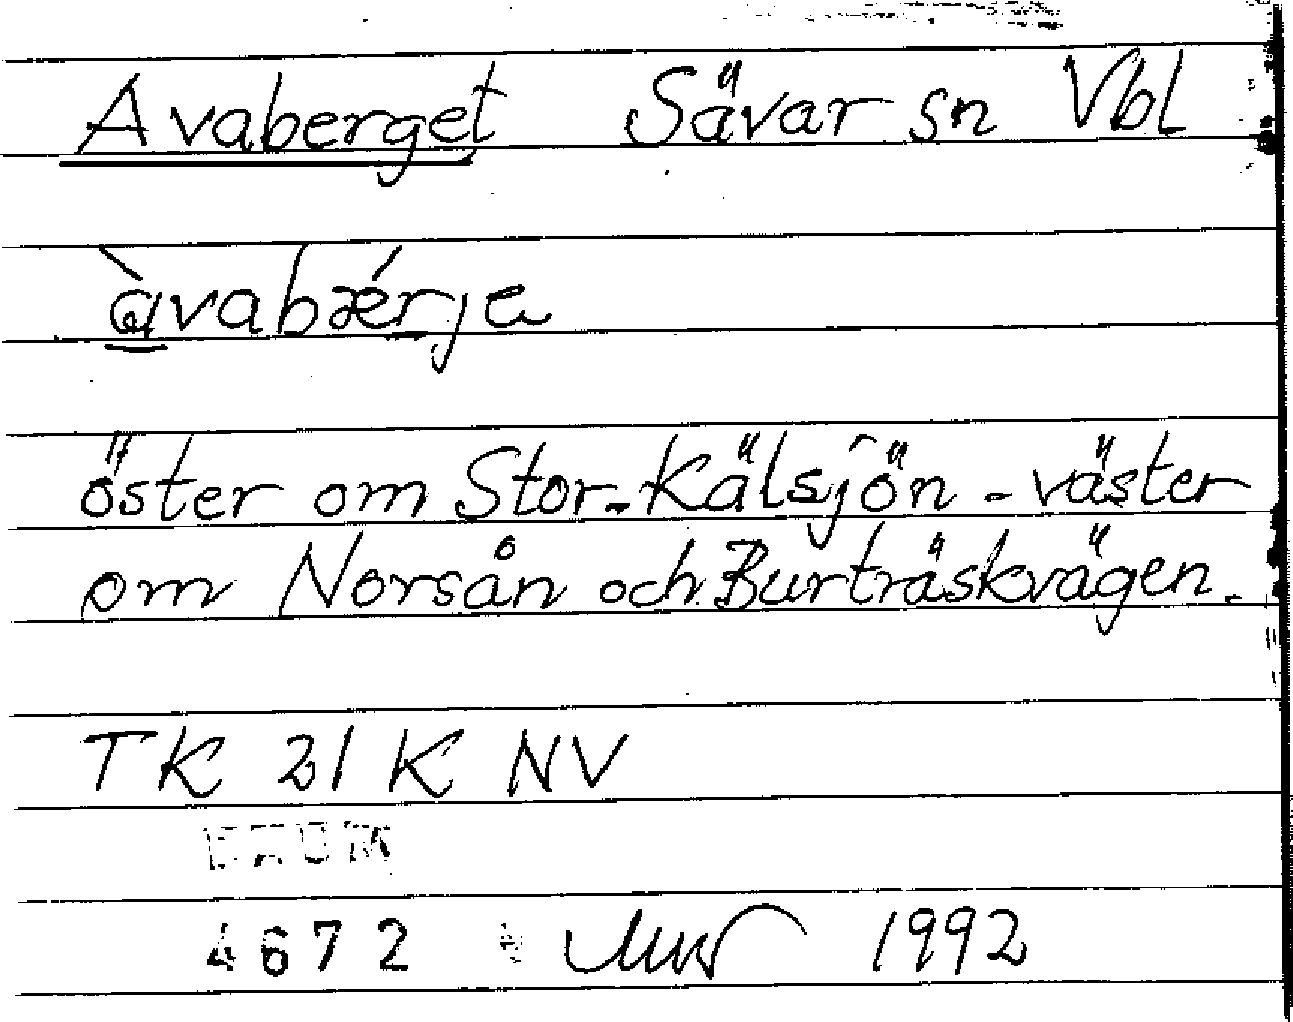 Avaberget Sävar sn Vbl
àvabǽrje
öster om Stor-Kälsjön - väster
om Norsån och Burträskvägen.
TK 21 K NV
DAUM
4672 1992